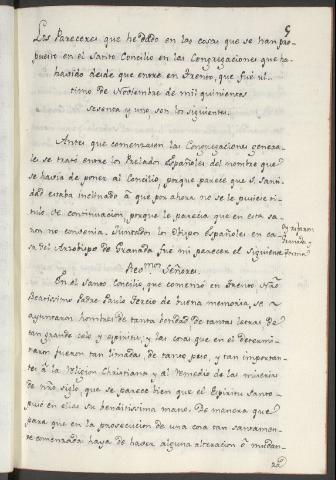 Los Pareceres que he dado en las cosas que se han pro-
puesto en el Santo Concilio en las Congregaciones que ha
havido desde que entre en Trento, que fué ul-
timo de Noviembre de mil quinientos
sesenta y uno, son los siguientes.
Antes que comenzasen las Congregaciones genera-
les se trató entre los Prelados Españoles del nombre que
se havia de poner al Concilio, porque parece que S. Santi-
dad estaba inclinado á que por ahora no se le pusiere ti-
tulo de continuacion, porque le parecia que en esta sa-
zon no convenia. Juntados los Obispos Españoles en ca-
sa del Arzobispo de Granada fué mi parecer el siguiente
Reo.mos Señores.
En el Santo Concilio, que comenzó en Trento Nrō
Beatissimo Padre Paulo Tercio de buena memoria, se a-
yuntaron hombres de tanta bondad, de tantas letras, de
tan grande celo y espiritu, y las cosas que en el determi-
naron fueron tan limadas, de tanto peso, y tan importan-
tes á la Religion Christiana y al remedio de las miserias
de nrō siglo, que se parece bien que el Espiritu Santo
puso en ellas su benditissima mano. De manera que
para que en la prosecucion de una cosa tan santamen-
te comenzada haya de haver alguna alteracion ó mudan-
za